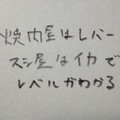 焼肉屋はレバー
スシ屋はイカで
レベルがわかる